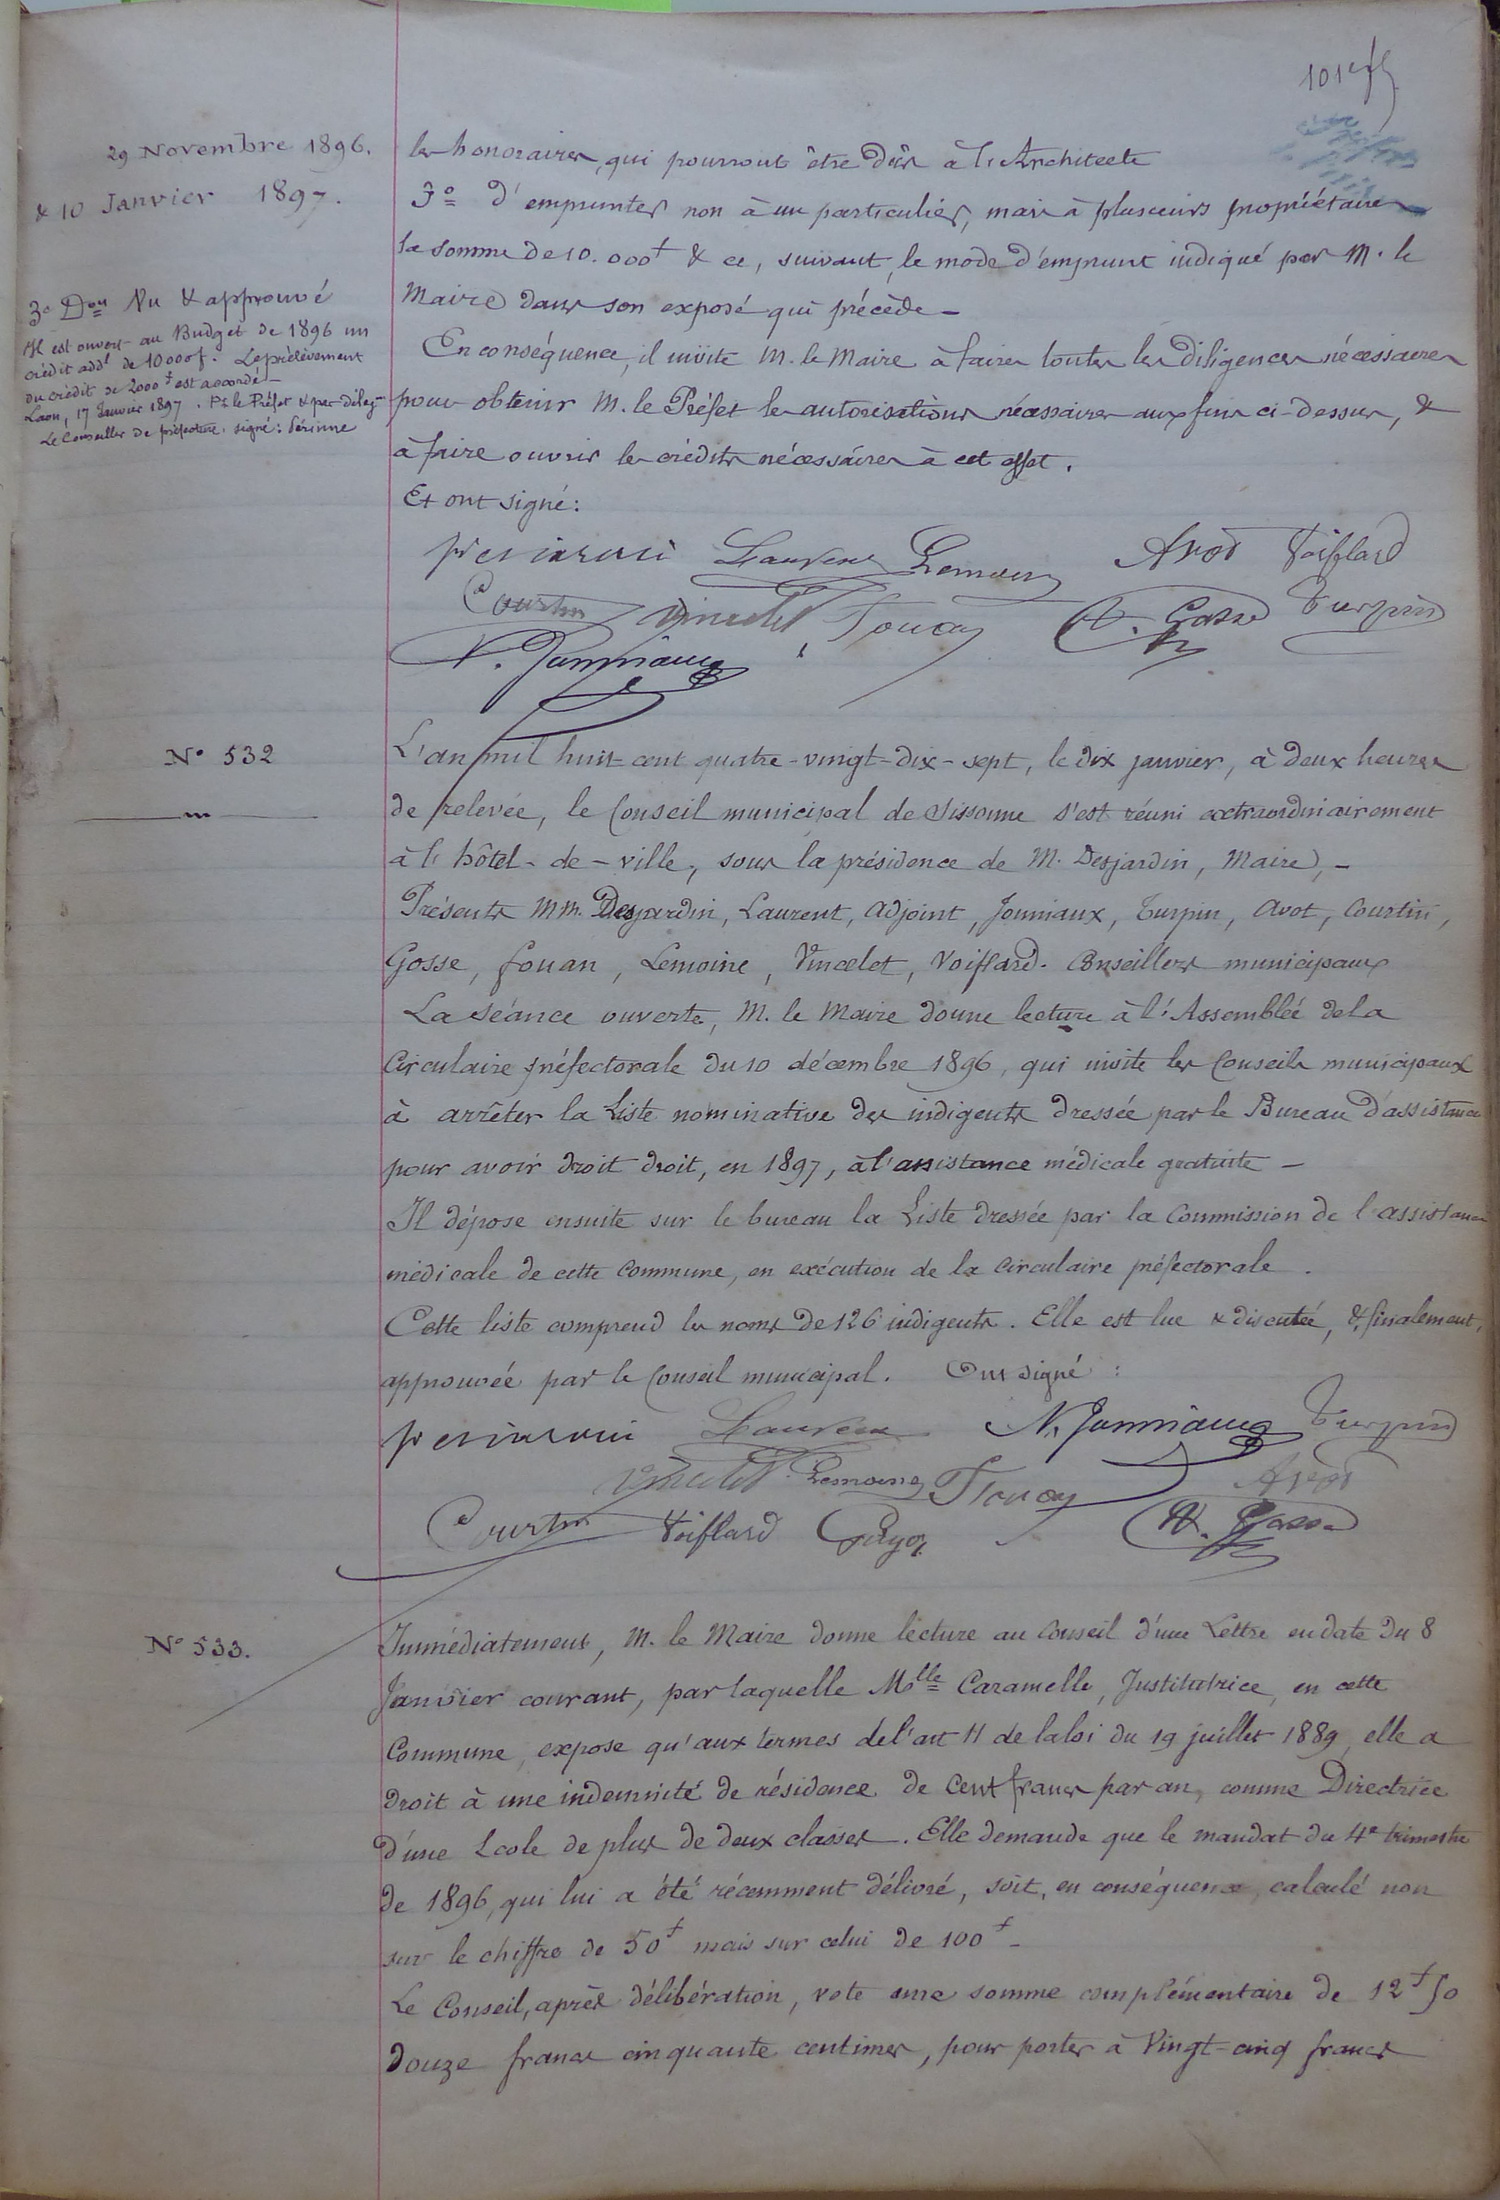 29 Novembre 1896.
& 10 Janvier 1897.
3e Don Vu & approuvé
Il est ouvert au Budget de 1896 un
crédit addl de 10000f. Le prélèvement
du crédit de 2000f est accordé -
Laon, 17 Janvier 1897. Pr le Préfet & par délég
Le Conseiller de préfecture signé: Périnne
les honoraires qui pourront être dûs à l'Architecte
3º d'emprunter non à un particulier, mais à plusieurs propriétaires
la somme de 10.000f & ce, suivant le mode d'emprunt indiqué par M. le
Maire dans son exposé qui précède -
En conséquence, il invite M. le Maire à faire toutes les diligences nécessaires
pour obtenir M. le Préfet les autorisations nécessaires aux fins ci-dessus, &
à faire ouvrir les crédits nécessaires à cet effet.
Et ont signé:
Laurent Lemoine Avot Voiflard
Courtin Vincelet Fouan A. Gosse Turpin
N. Jonniaux
Nº 532
L'an mil huit cent quatre-vingt-dix-sept, le dix janvier, à deux heures
de relevée, le Conseil municipal de Sissonne s'est réuni extraordinairement
à l'hôtel-de-ville, sous la présidence de M. Desjardin, Maire, -
Présents MM. Desjardin, Laurent, adjoint, Jonniaux, Turpin, Avot, Courtin,
Gosse, fouan, Lemoine, Vincelet, Voiflard. Conseillers municipaux
La séance ouverte, M. le Maire donne lecture à l'Assemblée de la
Circulaire préfectorale du 10 décembre 1896, qui invite les Conseils municipaux
à arrêter la Liste nominative des indigents dressée par le Bureau d'assistance
pour avoir droit droit, en 1897, à l'assistance médicale gratuite -
Il dépose ensuite sur le bureau la Liste dressée par la Commission de l'assistance
médicale de cette Commune, en exécution de la Circulaire préfectorale.
Cette liste comprend les noms de 126 indigents. Elle est lue & discutée, & finalement,
approuvée par le Conseil municipal. Ont signé:
Laurent N. Jonniaux Turpin
Vincelet Lemoine Fouan Avot
Courtin Voiflard A. Gosse
Nº 533.
Immédiatement, M. le Maire donne lecture au Conseil d'une Lettre en date du 8
Janvier courant, par laquelle Mlle Caramelle, Institutrice en cette
Commune, expose qu'aux termes de l'art 11 de la loi du 19 juillet 1889, elle a
droit à une indemnité de résidence de Cent francs par an, comme Directrice
d'une Ecole de plus de deux classes. Elle demande que le mandat du 4e trimestre
de 1896, qui lui a été récemment délivré, soit, en conséquence, calculé non
sur le chiffre de 50f mais sur celui de 100f -
Le Conseil, après délibération, vote une somme complémentaire de 12f50
douze francs cinquante centimes, pour porter à Vingt-cinq francs